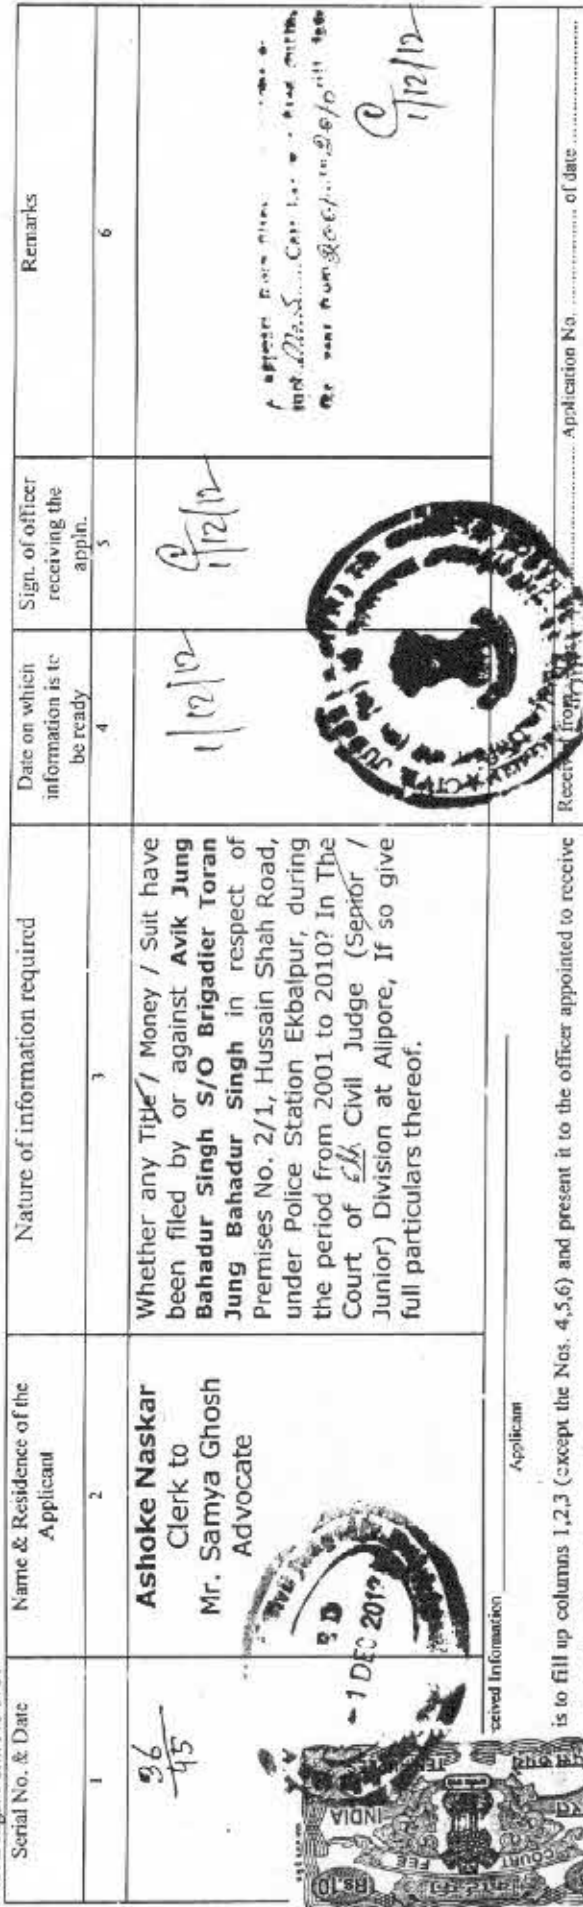 Serial No. & Date
Name & Residence of the
Applicant
Nature of information required
Date on which
information is to
be ready
Sign. of officer
receiving the
appln.
Remarks
1
2
3
4
5
6
36/45
Ashoke Naskar
Clerk to
Mr. Samya Ghosh
Advocate
Whether any Title / Money / Suit have
been filed by or against Avik Jung
Bahadur Singh S/O Brigadier Toran
Jung Bahadur Singh in respect of
Premises No. 2/1, Hussain Shah Road,
under Police Station Ekbalpur, during
the period from 2001 to 2010? In The
Court of Civil Judge (Senior /
Junior) Division at Alipore, If so give
full particulars thereof.
1/12/12
1/12/12
from 2001 2010 till
1/12/12
- 1 DEC 2012
CIVIL JUDGE
INDIA
COURT
FEE
Rs.10
ceived Information
Applicant
is to fill up columns 1,2,3 (except the Nos. 4,5,6) and present it to the officer appointed to receive
Received from Application No. of date